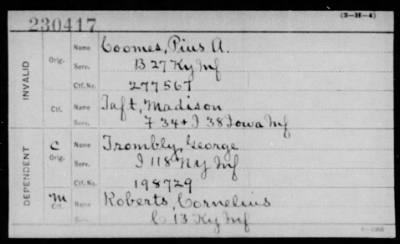 (3-H-4)
230417
INVALID
Orig.
Name
Coomes, Pius A.
Serv.
B 27 Ky Inf
Ctf. No.
277567
Ctf.
Name
Taft, Madison
F 34 + I 38 Iowa Inf
DEPENDENT
C
Orig.
Name
Trombly, George
Serv.
I 118 NY Inf
Ctf. No.
198729
M
Ctf.
Name
Roberts, Cornelius
C 13 Ky Inf